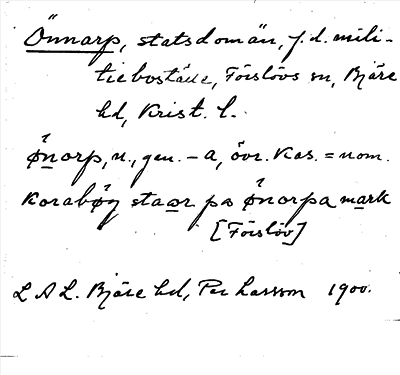 Önnarp, statsdomän, f.d. mili-
tieboställe, Förslövs sn, Bjäre
hd, Krist. l.
ø̂norp, n., gen. -a, övr. kas. = nom.
korabø̂g staar pa ø̂norpa mark
[Förslöv]
L A L. Bjäre hd, Per Larsson 1900.